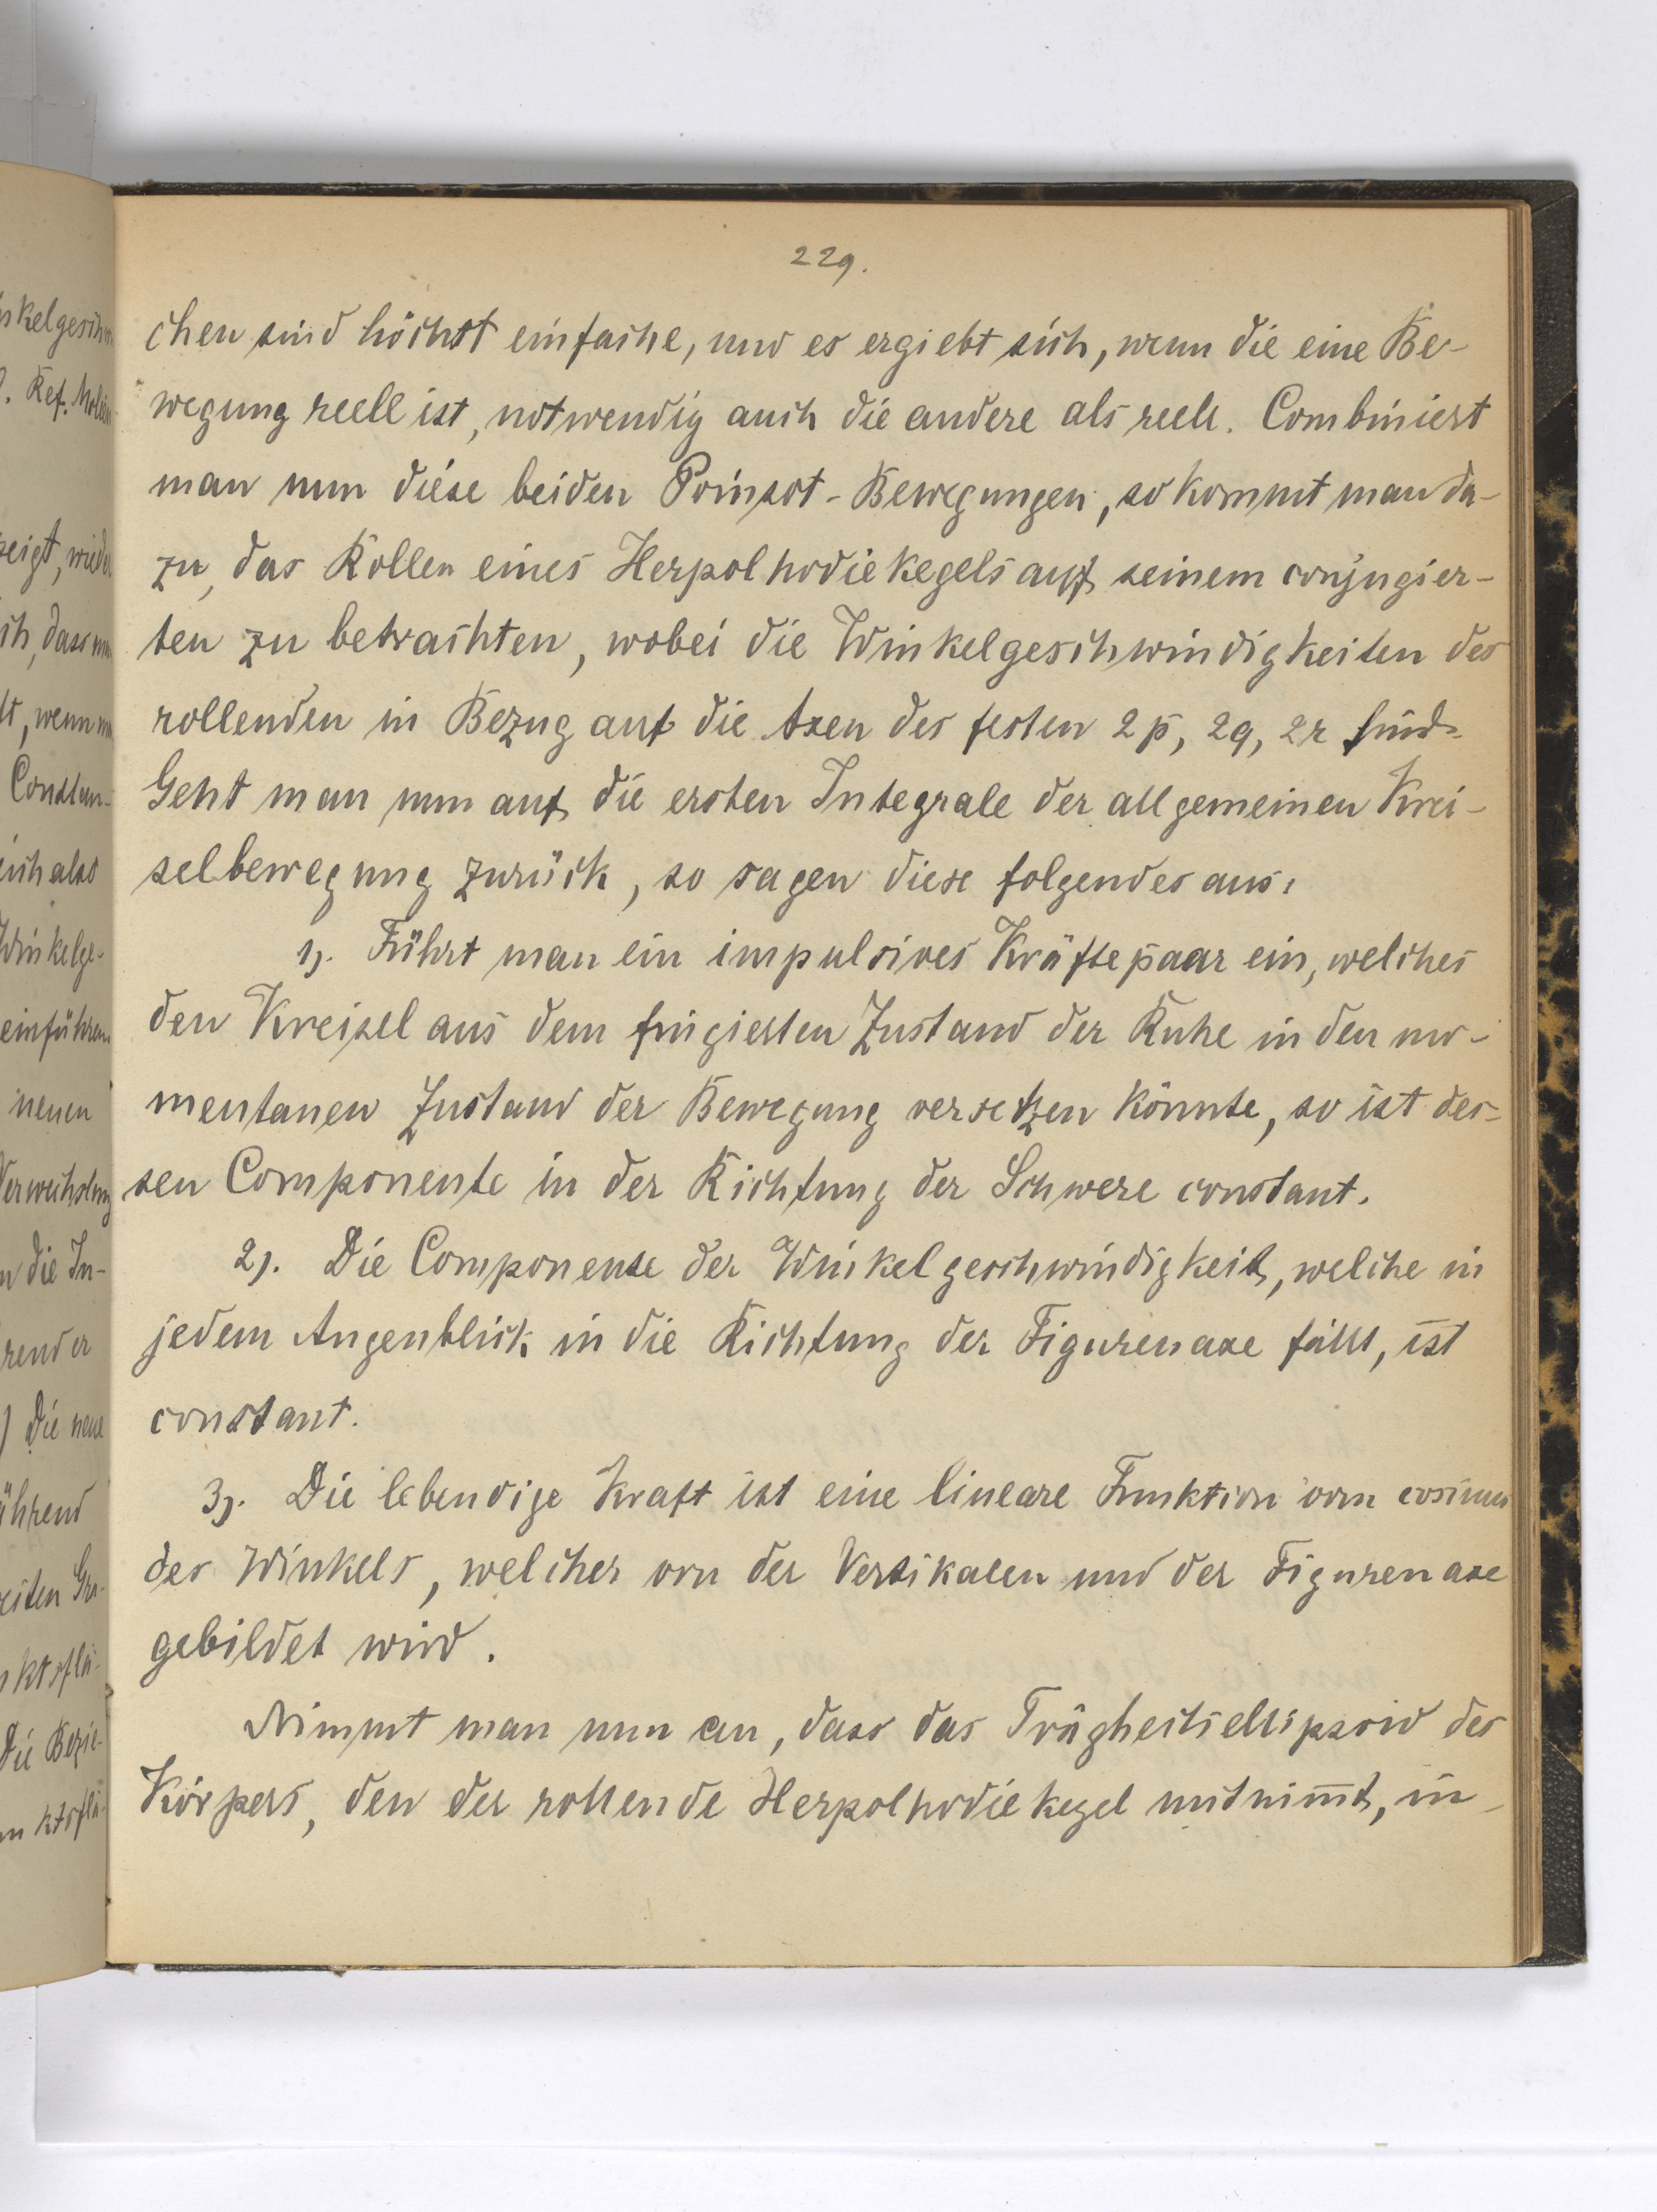 229.
chen sind höchst einfache, und es ergiebt sich, wenn die eine Be-
wegung reell ist, notwendig auch die andere als reell. Combiniert
man nun diese beiden Poinsot-Bewegungen, so kommt man da-
zu, das Rollen eines Herpolhodiekegels auf seinem conjugier-
ten zu betrachten, wobei die Winkelgeschwindigkeiten des
rollenden in Bezug auf die Axen des festen 2p, 2q, 2r sind.
Geht man nun auf die ersten Integrale der allgemeinen Krei-
selbewegung zurück, so sagen diese folgendes aus:
1). Führt man ein impulsives Kräftepaar ein, welches
den Kreisel aus dem fingierten Zustand der Ruhe in den mo-
mentanen Zustand der Bewegung versetzen könnte, so ist des-
sen Componente in der Richtung der Schwere constant.
2). Die Componente der Winkelgeschwindigkeit, welche in
jedem Augenblick in die Richtung der Figurenaxe fällt, ist
constant.
3). Die lebendige Kraft ist eine lineare Funktion vom cosinus
des Winkels, welcher von der Vertikalen und der Figurenaxe
gebildet wird.
Nimmt man nun an, dass das Trägheitsellipsoid des
Körpers, den der rollende Herpolhodiekegel mitnim̅t, in-